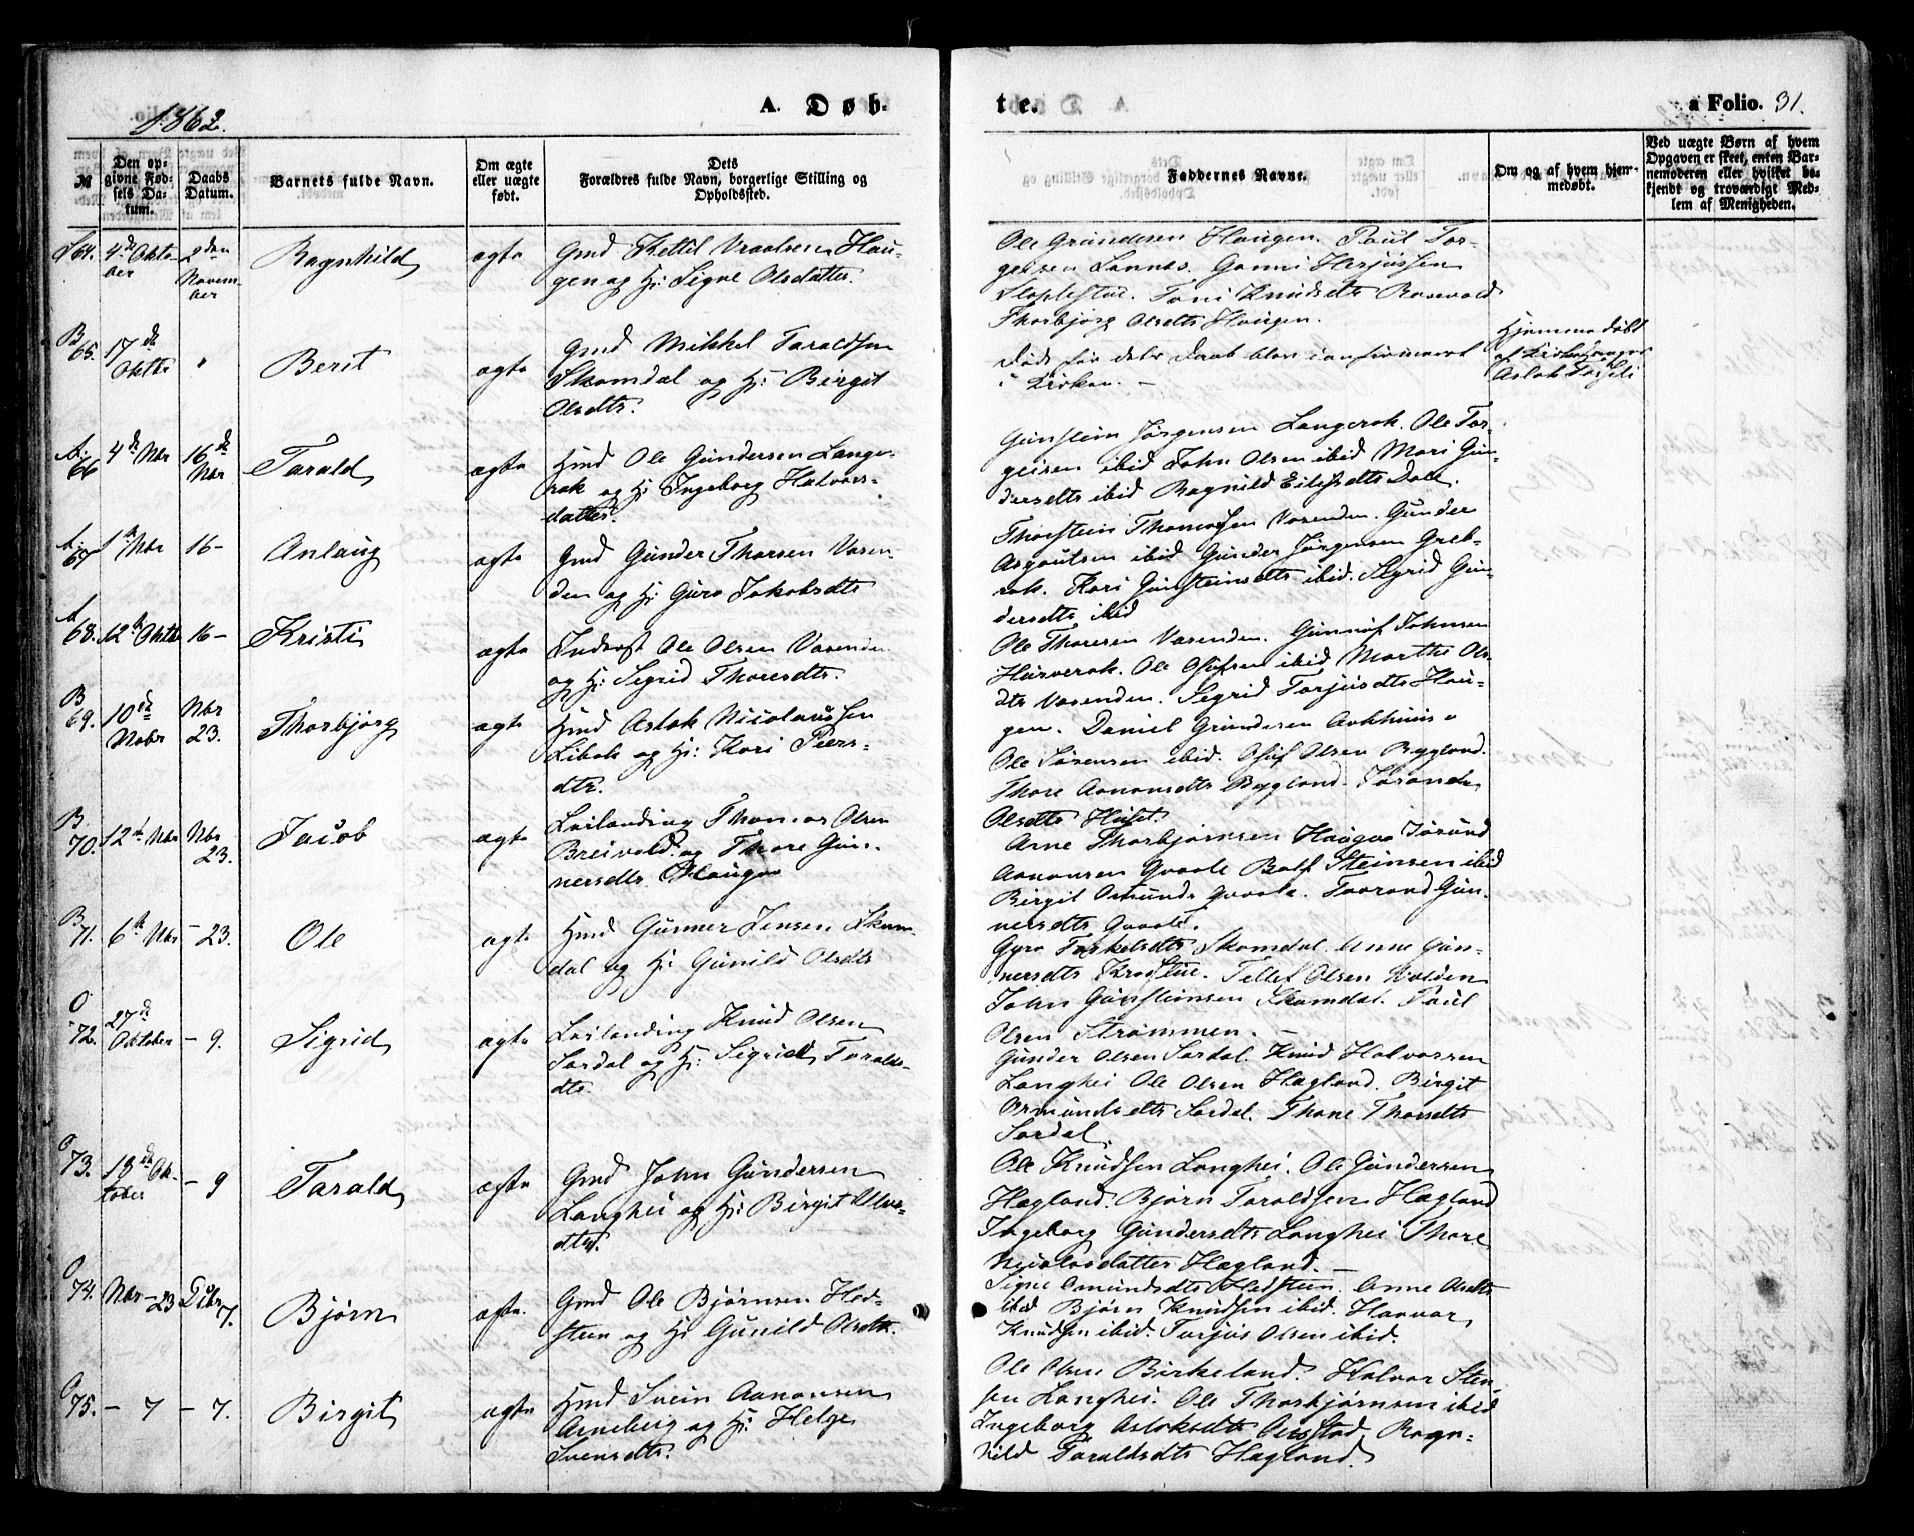 1862.
A. Døb-
te.
a Folio. 31.
№
Den op-
givne Fød-
sels Da-
tum.
Daabs
Datum.
Barnets fulde Navn.
Om ægte
eller uægte
født.
Dets
Forældres fulde Navn, borgerlige Stilling og
Opholdssted.
Faddernes Navne.
Om og af hvem hjem-
medøbt.
Ved uægte Børn af hvem
Opgaven er skeet, enten Bar-
nemoderen eller hvilket be-
kjendt og troværdigt Med-
lem af Menigheden.
64. 4de Okto-
ber
2den
Novem-
ber
Ragnhild
ægte
Gmd Kettil Vraalsen Hau-
gen og H: Signe Olsdatter.
Ole Gundersen Haugen. Paul Tor-
geisen Lannes. Gunni Herjussen
Stoplestad. Toni Knudsdtr Rosevold
Thorbjørg Olsdtr Haugen.
B
65. 17de
Oktbr
"
Berit
ægte
Gmd Mikkel Taraldsen
Skomdal og H: Birgit
Olsdtr.
Døde før dets Daab blev confirmeret
i Kirken. –
Hjemmedøbt
af Kirkesanger
Aslak
A.
66 4de Nbr
16de
Nbr
Tarald
ægte
Hmd Ole Gundersen Lange-
rak og H: Ingeborg Halvors-
datter.
Gunstein Jørgensen Langerak. Ole Tor-
geisen ibid John Olsen ibid Mari Gun-
dersdtr ibid Ragnild Eilefsdtr Dale.
A.
67 1ste Nbr
16 –
Anlaug
ægte
Gmd Gunder Thorsen Vasen-
den og H: Guro Jakobsdtr
Thorstein Thomassen Vasenden. Gunder
Asgautsen ibid Gunder Jørgensen Greb-
rok. Kari Gunsteinsdtr ibid. Sigrid Gun-
dersdtr ibid
A
68. 12te Oktbr
16 –
Kristi
ægte
Inderst Ole Olsen Vasenden
og H: Sigrid Thoresdtr.
Ole Thoresen Vasenden. Gunnuf Johnsen
Hurverak. Ole Osufsen ibid Marthe Ols-
dtr Vasenden. Sigrid Torjusdtr Hau-
gen.
B
69. 10de
Nobr
Nbr
23.
Thorbjørg
ægte
Hmd Aslak Nicolaussen
Libak og H: Kari Peers-
dtr.
Daniel Gundersen
Ole Sørensen ibid. Osuf Olsen Bygland.
Thore Aanonsdtr Bygland. Joronde
Olsdtr Huset.
B
70. 12te Nbr
Nbr
23.
Jacob
ægte
Leilænding Thomas Olsen
Breivold og Thore Gun-
nersdtr Haugaa
Arne Thorbjørnsen Haugaa Jørund
Aanonsen Qvaale Rolf Steinsen ibid
Birgit Osmundsd. Qvaale. Taarand Gun-
nersdtr Qvaale.
B
71. 6te Nbr
– 23.
Ole
ægte
Hmd Gunner Jensen Skam-
dal og H: Gunild Olsdtr
Gyro Torkelsdtr Skomdal. Anne Gun-
nersdtr Krogstue. Tellef Olsen Volden
John Gunsteinsen Skomdal. Paul
Olsen Strømmen. –
O
72. 27de
Oktober
– 9.
Sigrid
ægte
Leilænding Knud Olsen
Sordal og H: Sigrid Taralds-
dtr.
Gunder Olsen Sordal. Knud Halvorsen
Langhei Ole Olsen Hægland. Birgit
Osmundsdtr Sordal. Thone Thorsdtr
Sordal.
O
73. 18de Ok-
tober
– 9
Tarald
ægte
Gmd John Gundersen
Langhei og H: Birgit Ulvs-
dtr.
Ole Knudsen Langhei. Ole Gundersen
Hægland. Bjørn Taraldsen Hægland
Ingeborg Gundersdtr Langhei Thore
Nicolasdatter Hægland. –
O
74. Nbr – 23
Dcbr
7.
Bjørn
ægte.
Gmd Ole Bjørnsen Hod-
steen og H: Gunild Olsdtr.
Signe Omundsdtr Hodsteen. Anne Olsdtr
ibid Bjørn Knudsen ibid. Haavar
Knudsen ibid. Torjus Olsen ibid.
O
75. – 7
– 7.
Birgit
ægte
Hmd Svein Aanonsen
Arneberg og H: Helge
Svensdtr.
Ole Olsen Birkeland. Halvor Sten-
sen Langhei. Ole Thorbjørnsen ibid
Ingeborg Aslaksdtr Ragn-
hild Taraldsdtr Hægland.